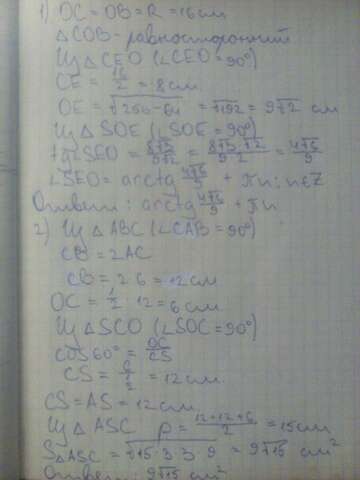 1) OC = OB = R = 16 см
△COB - равносторонний
Из △CEO (∠CEO = 90°)
CE = 16/2 = 8 см.
OE = √256-64 = √192 = 9√2 см
Из △SOE (∠SOE = 90°)
tg∠SEO = 8√3/9√2 = 8√3·√2/9·2 = 4√6/9
∠SEO = arctg 4√6/9 + πn; n∈Z
Ответ: arctg 4√6/9 + πn
2) Из △ABC (∠CAB = 90°)
CB = 2AC
CB = 2·6 = 12 см
OC = 1/2·12 = 6 см
Из △SCO (∠SOC = 90°)
cos60° = OC/CS
CS = 6/1/2 = 12 см.
CS = AS = 12 см.
Из △ASC p = 12+12+6/2 = 15 см
S△ASC = √15·3·3·9 = 9√15 см²
Ответ: 9√15 см²